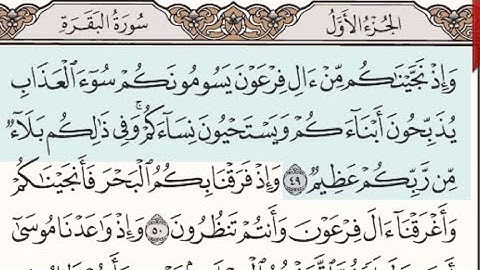 سُورَةُ البَقَرَةِ الجُزْءُ الأَوَّلُ
وَإِذْ نَجَّيْنَٰكُم مِّنْ ءَالِ فِرْعَوْنَ يَسُومُونَكُمْ سُوٓءَ ٱلْعَذَابِ
يُذَبِّحُونَ أَبْنَآءَكُمْ وَيَسْتَحْيُونَ نِسَآءَكُمْ ۚ وَفِى ذَٰلِكُم بَلَآءٌ
مِّن رَّبِّكُمْ عَظِيمٌ ٤٩ وَإِذْ فَرَقْنَا بِكُمُ ٱلْبَحْرَ فَأَنجَيْنَٰكُمْ
وَأَغْرَقْنَآ ءَالَ فِرْعَوْنَ وَأَنتُمْ تَنظُرُونَ ٥٠ وَإِذْ وَٰعَدْنَا مُوسَىٰٓ